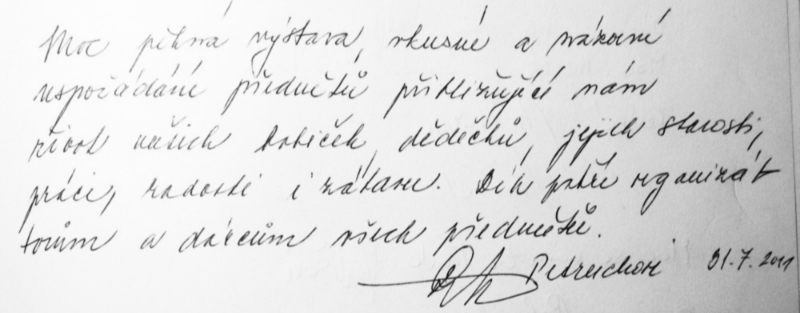 Moc pěkná výstava, vkusné a názorné
uspořádání předmětů přibližující nám
život našich babiček, dědečků, jejich starosti,
práci, radosti i zábavu. Dík patří organizát
torům a dárcům všech předmětů.
Petruchovi 31.7.2011